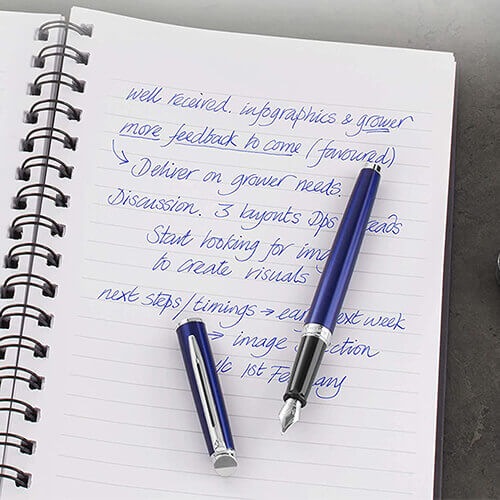 well received. infographics & grower
more feedback to come (favoured)
↳ Deliver on grower needs.
Discussion. 3 layouts Dps reads
Start looking for ima
to create visuals
next steps/timings → ea next week
→ image ction
1st Feb